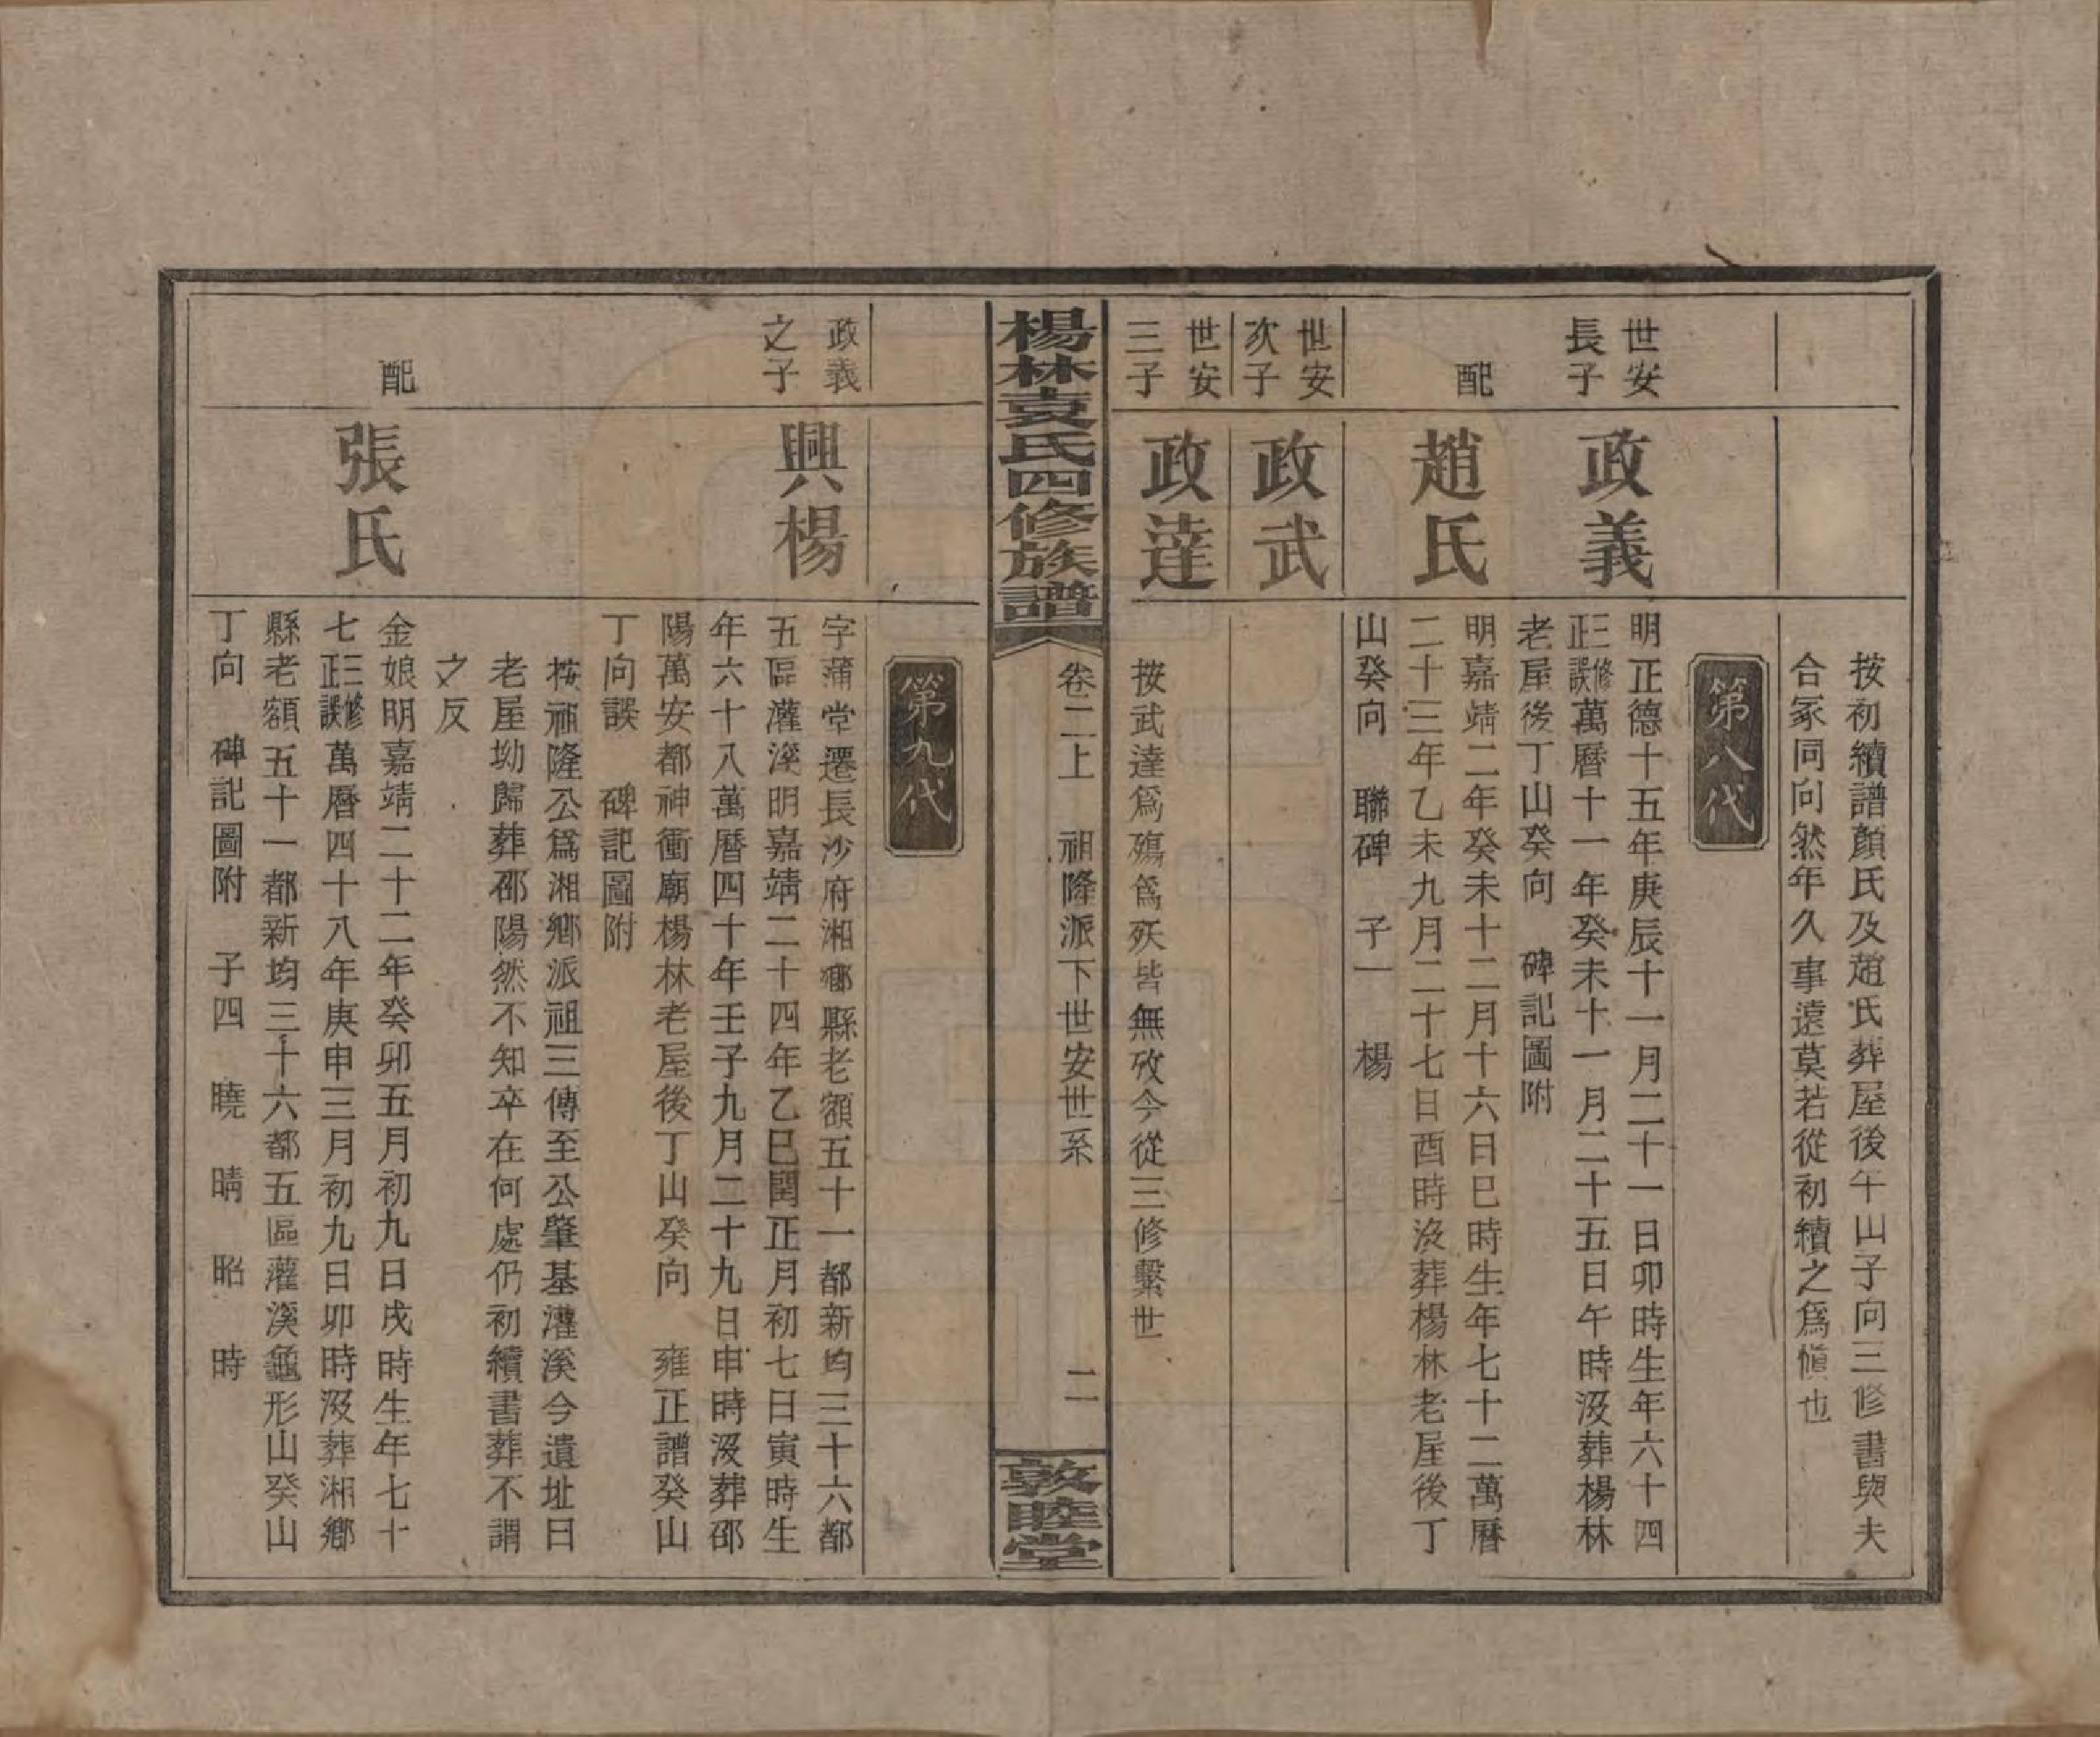 按初續譜顏氏及趙氏葬屋後午山子向三修書與夫
合冢同向然年久事遠莫若從初續之爲愼也
第八代
世安
長子
政義
明正德十五年庚辰十一月二十一日卯時生年六十四
三修正誤萬曆十一年癸未十一月二十五日午時沒葬楊林
老屋後丁山癸向　碑記圖附
配
趙氏
明嘉靖二年癸未十二月十六日巳時生年七十二萬曆
二十三年乙未九月二十七日酉時沒葬楊林老屋後丁
山癸向　聯碑　子一　楊
世安
次子
政武
世安
三子
政達
按武達爲殤爲殀皆無攷今從三修繫世
楊林袁氏四修族譜
卷二上　祖隆派下世安世系
二
敦睦堂
第九代
政義
之子
興楊
字蒲堂遷長沙府湘鄉縣老額五十一都新均三十六都
五區灌溪明嘉靖二十四年乙巳閏正月初七日寅時生
年六十八萬曆四十年壬子九月二十九日申時沒葬邵
陽萬安都神衝廟楊林老屋後丁山癸向　雍正譜癸山
丁向誤　碑記圖附
按祖隆公爲湘鄉派祖三傳至公肇基灌溪今遺址曰
老屋坳歸葬邵陽然不知卒在何處仍初續書葬不謂
之反
配
張氏
金娘明嘉靖二十二年癸卯五月初九日戌時生年七十
七三修正誤萬曆四十八年庚申三月初九日卯時沒葬湘鄉
縣老額五十一都新均三十六都五區灌溪龜形山癸山
丁向　碑記圖附　子四　曉　晴　昭　時